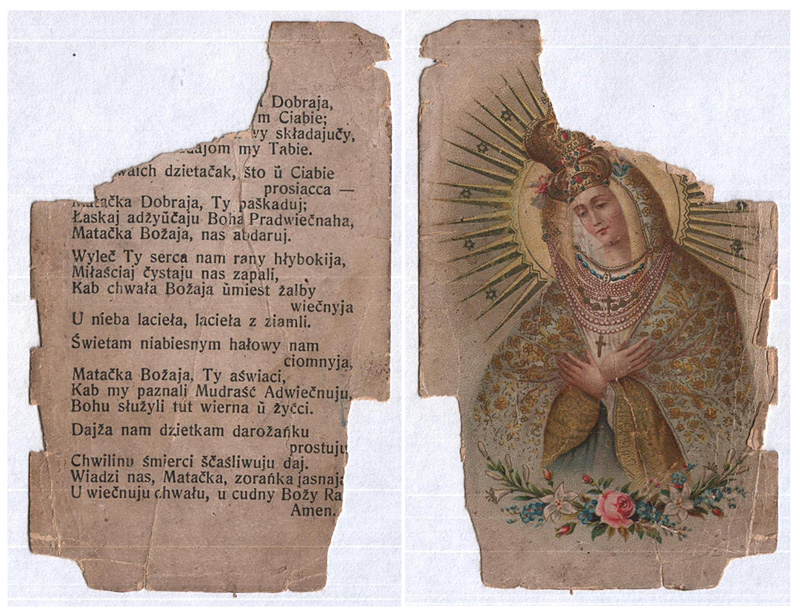 Dobraja,
m Ciabie;
składajučy,
my Tabie.
dzietačak, što ŭ Ciabie
prosiacca —
Matačka Dobraja, Ty paškaduj;
Łaskaj adžyŭčaju Boha Pradwiečnaha,
Matačka Božaja, nas abdaruj.
Wyleč Ty serca nam rany hłybokija,
Miłaściaj čystaju nas zapali,
Kab chwała Božaja ŭmiest žalby
wiečnyja
U nieba lacieła, lacieła z ziamli.
Świetam niabiesnym hałowy nam
ciomnyja,
Matačka Božaja, Ty aświaci,
Kab my paznali Mudraść Adwiečnuju,
Bohu słužyli tut wierna ŭ žyćci.
Dajža nam dzietkam darožańku
prostuju
Chwilinu śmierci ščaśliwuju daj.
Wiadzi nas, Matačka, zorańka jasnaja
U wiečnuju chwału, u cudny Božy Ra
Amen.